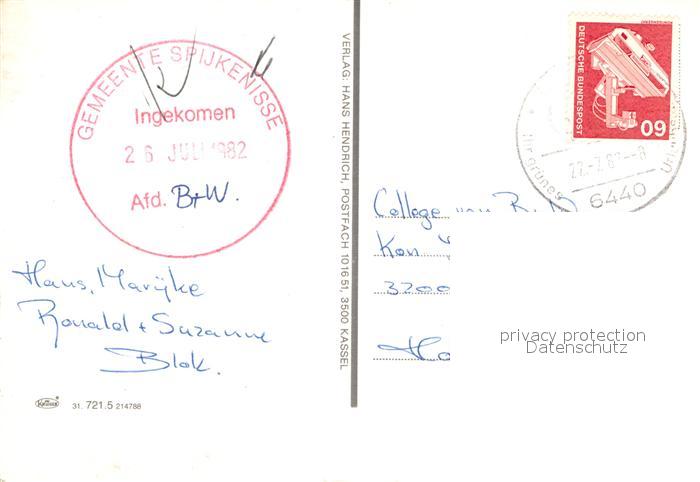 GEMEENTE SPIJKENISSE
Ingekomen
26 JULI 1982
Afd. B+W.
Hans, Marijke
Ronald + Suzanne
Blok.
31. 721.5 214788
VERLAG: HANS HENDRICH, POSTFACH 101651, 3500 KASSEL
DEUTSCHE BUNDESPOST
60
22.-7.82--8
6440
College van B.
Kon
3200
privacy protection
Datenschutz